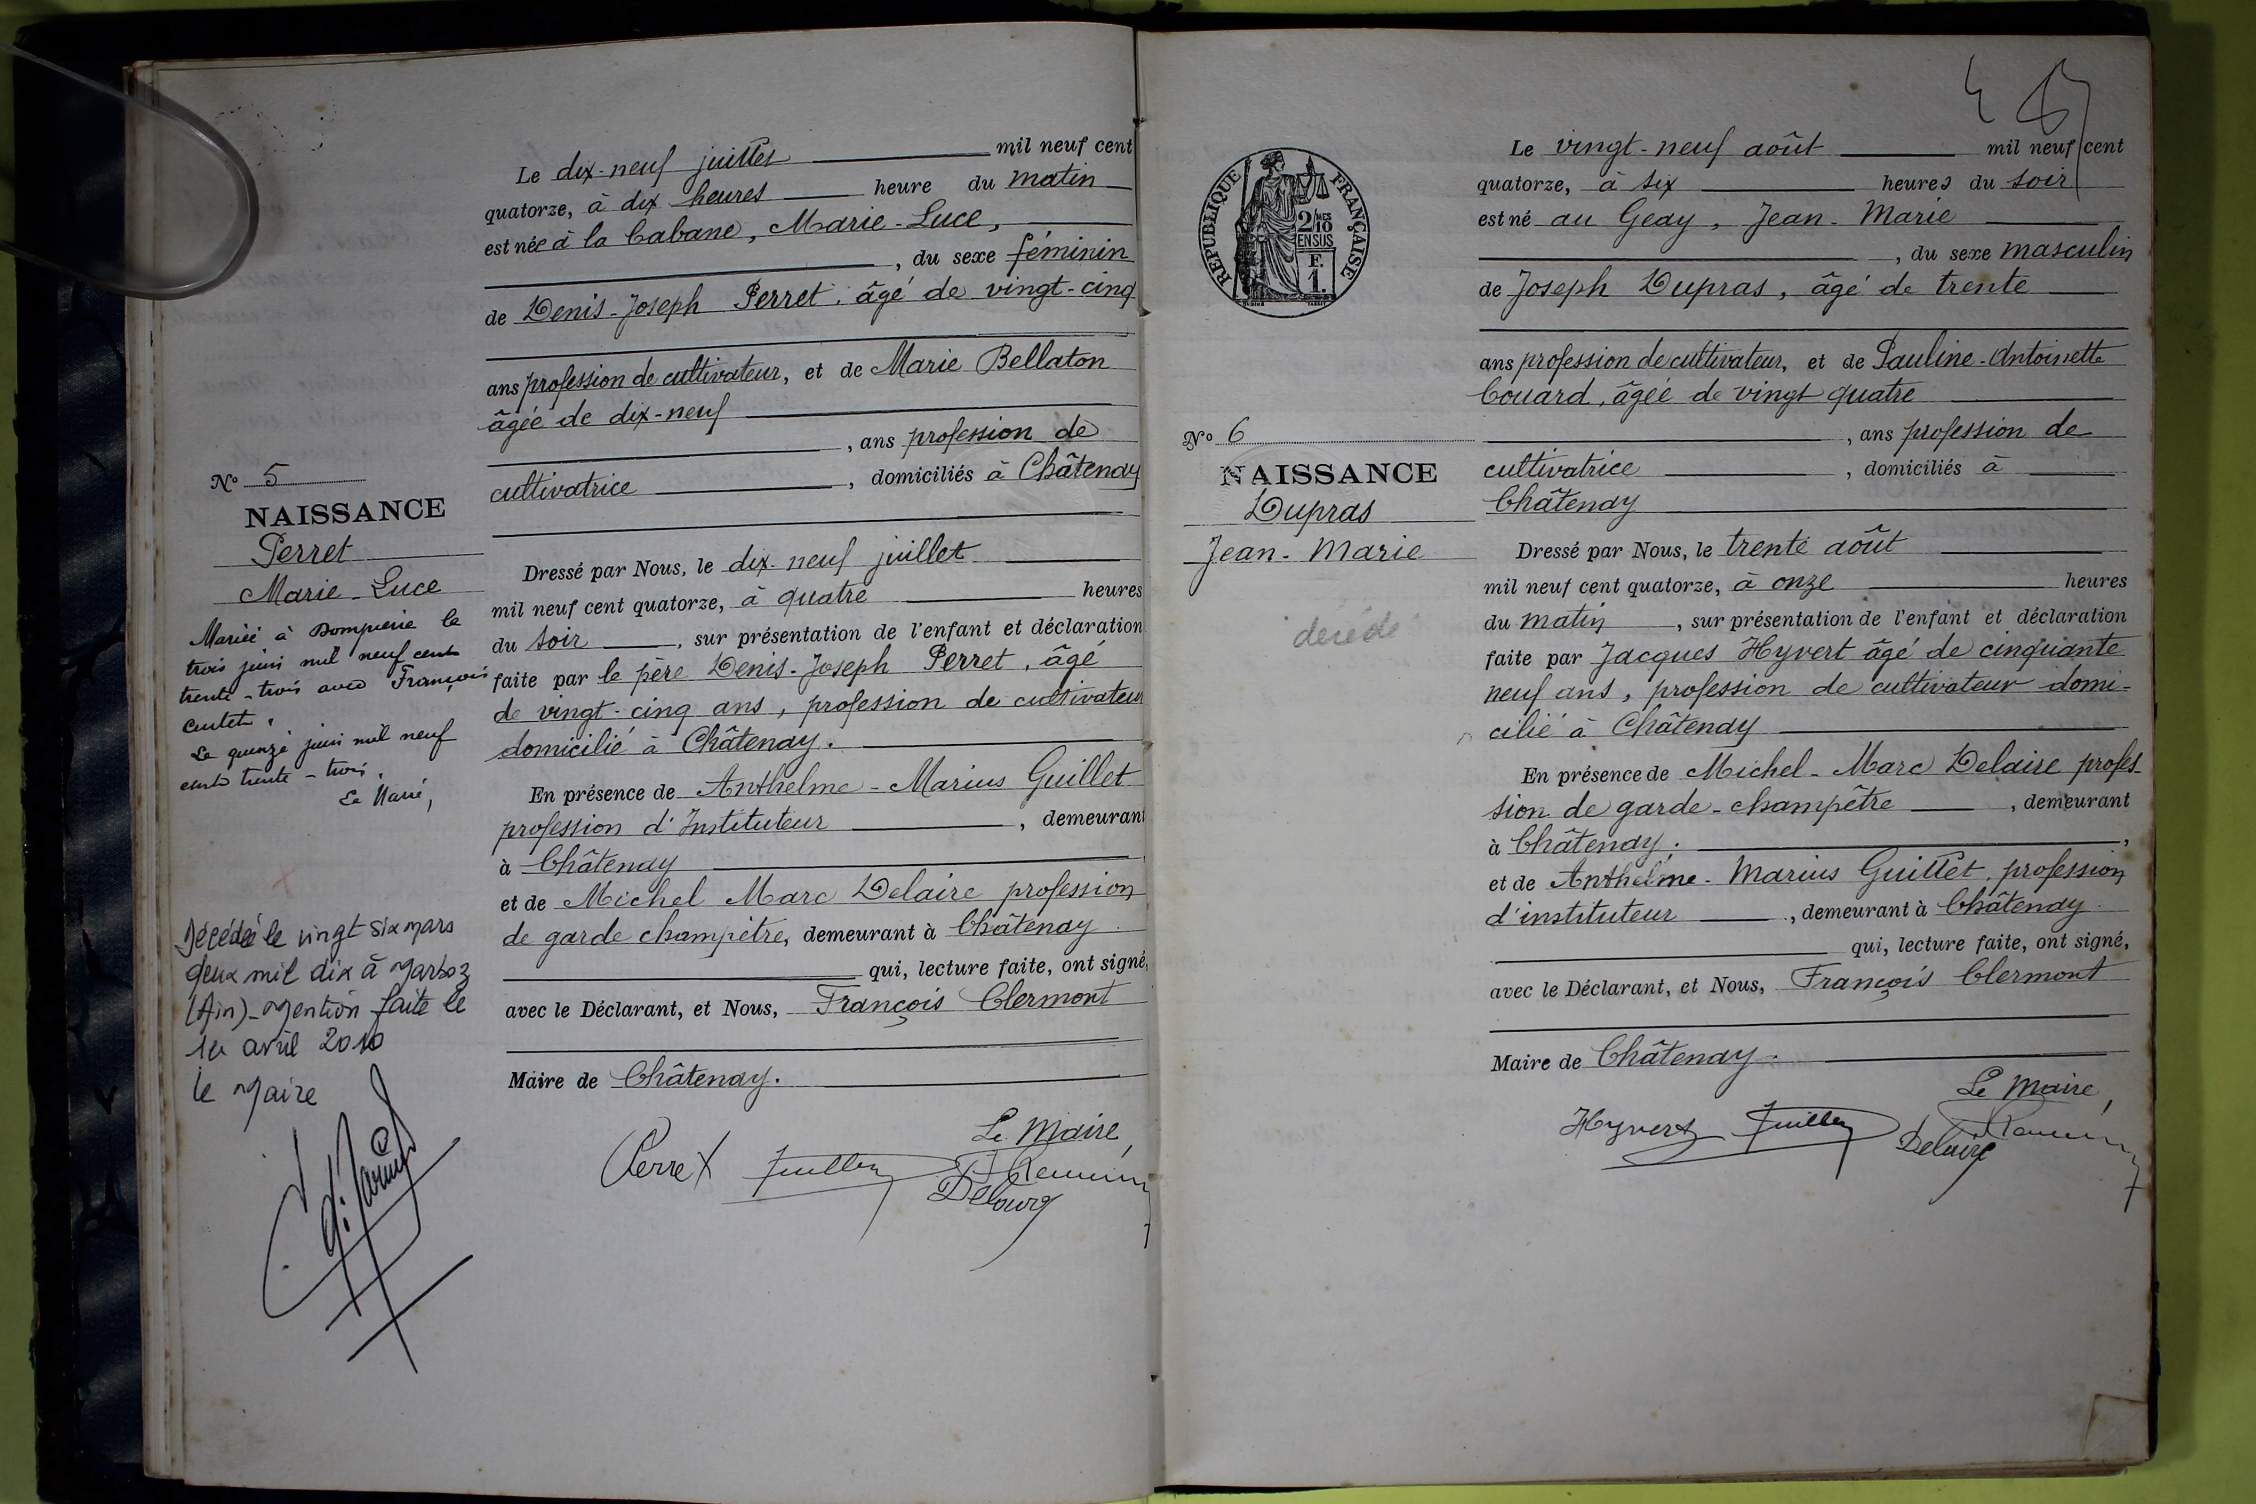 Le dix-neuf juillet mil neuf cent
quatorze, à dix heures heure du matin
est née à la Cabane, Marie-Luce,
, du sexe féminin
de Denis-Joseph Perret, âgé de vingt-cinq
ans profession de cultivateur, et de Marie Bellaton
âgée de dix-neuf
, ans profession de
cultivatrice , domiciliés à Châtenay
No 5
NAISSANCE
Perret
Marie-Luce
Mariée à Dompierre le
trois juin mil neuf cent
trente-trois avec François
Cutet.
Le quinze juin mil neuf
cent trente-trois.
Le Maire,
Décédée le vingt six mars
deux mil dix à Marboz
(Ain)_Mention faite le
1er avril 2010
le Maire
Dressé par Nous, le dix-neuf juillet
mil neuf cent quatorze, à quatre heures
du soir , sur présentation de l'enfant et déclaration
faite par le père Denis-Joseph Perret, âgé
de vingt-cinq ans, profession de cultivateur
domicilié à Châtenay.
En présence de Anthelme-Marius Guillet
profession d'Instituteur , demeurant
à Châtenay
et de Michel Marc Delaire profession
de garde champêtre, demeurant à Châtenay
qui, lecture faite, ont signé,
avec le Déclarant, et Nous, François Clermont
Maire de Châtenay.
Le Maire,
Perret
RÉPUBLIQUE FRANÇAISE
2/10 MES
EN SUS
F.
1.
Le vingt-neuf août mil neuf cent
quatorze, à six heures du soir
est né au Geay, Jean-Marie
, du sexe masculin
de Joseph Dupras, âgé de trente
ans profession de cultivateur, et de Pauline-Antoinette
Couard, âgée de vingt quatre
, ans profession de
cultivatrice , domiciliés à
Châtenay
No 6
NAISSANCE
Dupras
Jean-Marie
décédé
Dressé par Nous, le trente août
mil neuf cent quatorze, à onze heures
du matin , sur présentation de l'enfant et déclaration
faite par Jacques Hyvert âgé de cinquante
neuf ans, profession de cultivateur domi-
cilié à Châtenay
En présence de Michel-Marc Delaire profes-
sion de garde-champêtre , demeurant
à Châtenay. ,
et de Anthelme-Marius Guillet, profession
d'instituteur , demeurant à Châtenay
qui, lecture faite, ont signé,
avec le Déclarant, et Nous, François Clermont
Maire de Châtenay.
Le Maire,
Hyvert
Delaire